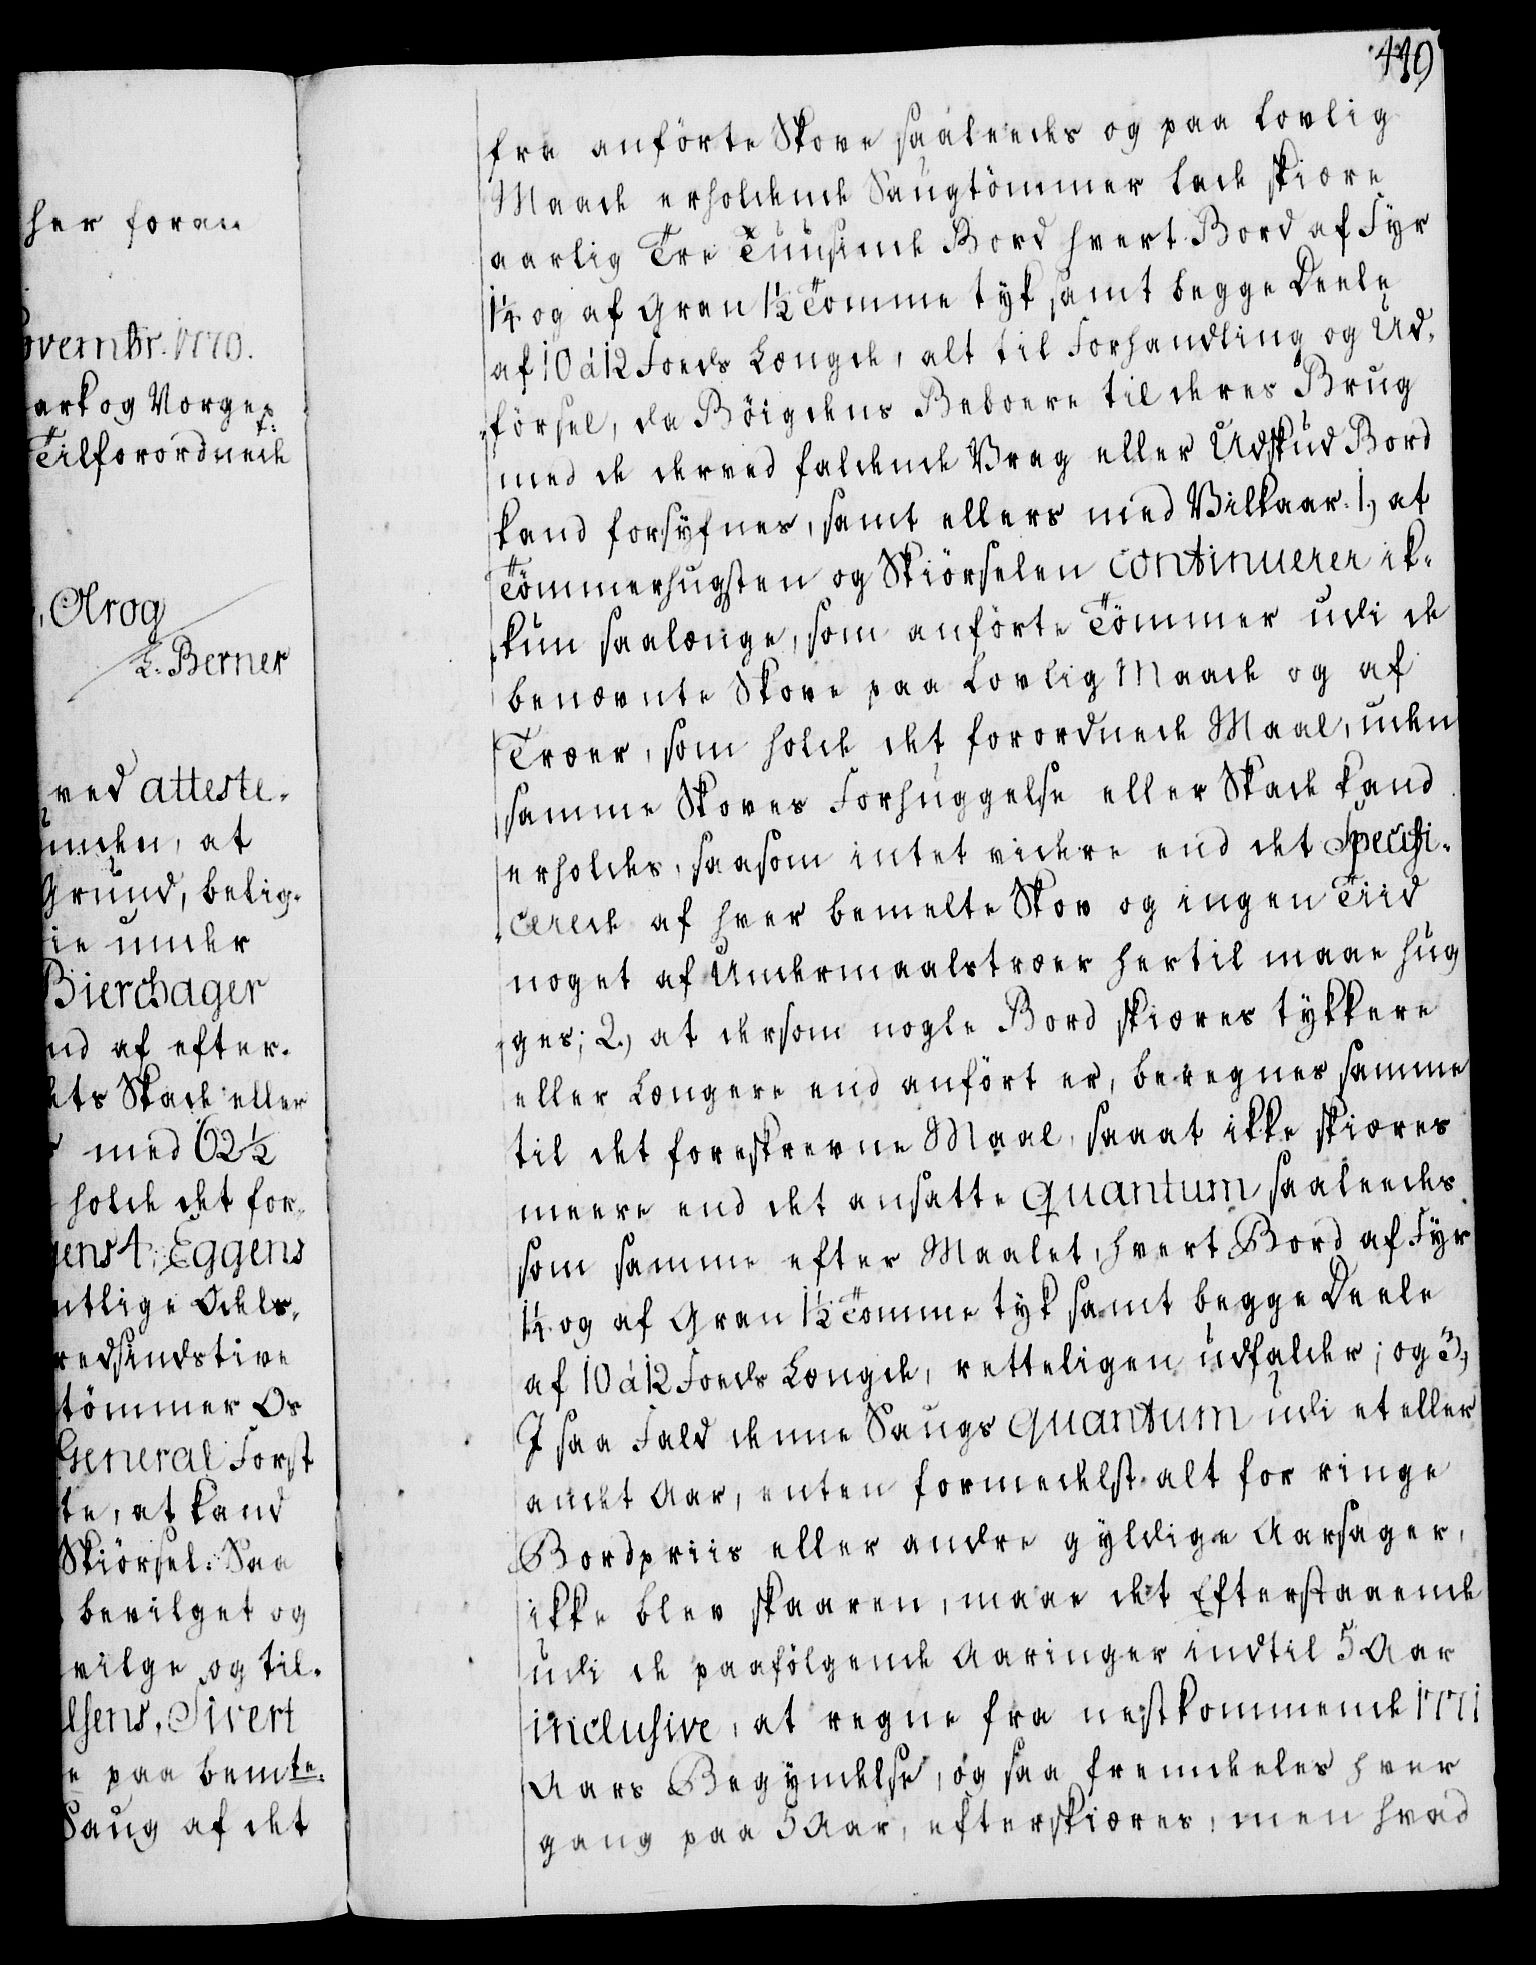 her foran
ovembr. 1770.
ark og Norges
Tilforordnede
, Olrog
L. Berner
ved atteste-
unden, at
Grund, belig-
ie under
Bierchager
nd af efter-
ets Skade eller
med 62½
holde det for-
gens 4, Eggens
ntlige Odels-
redsindstive
tömmer Os
General Forst
te, at kand
Skiörsel: Saa
bevilget og
vilge og til-
lsens, Sivert
e paa bemte.
Saug af det
419
fra anförte Skove saaledes og paa Lovlig
Maade erholdende Saugtömmer lade skiære
aarlig Tre Tuusinde Bord hvert Bord af Fyr
1¼ og af Gran 1½ Tomme tyk samt begge Deele
af 10 à 12 Foeds Længde, alt til Forhandling og Ud-
försel, da Böigdens Beboere til deres Brug
med de derved faldende Vrag eller Udskud Bord
kand forsÿfnes, samt ellers med Vilkaar: 1, at
Tömmerhugsten og Skiörselen continuerer ik-
kun saalænge, som anförte Tömmer udi de
benævnte Skove paa Lovlig Maade og af
Træer, som holde det forordnede Maal, uden
samme Skoves Forhuggelse eller Skade kand
erholdes, saasom intet videre end det Specifi-
cerede af hver bemelte Skov og ingen Tiid
noget af Undermaalstræer hertil maae hug
ges; 2, at dersom nogle Bord skiæres tÿkkere
eller Længere end anfört er, beregnes samme
til det foreskrevne Maal, saa at ikke skiæres
meere end det ansatte quantum saaledes
som samme efter Maalet, hvert Bord af Fyr
1¼ og af Gran 1½ Tomme tyk samt begge Deele
af 10 à 12 Foeds Længde, retteligen udfalder; og 3,
I saa Fald denne Saugs quantum udi et eller
andet Aar, enten formedelst alt for ringe
Bordpriis eller andre gyldige Aarsager,
ikke blev skaaren, maae det Efterstaaende
udi de paafölgende Aaringer indtil 5 Aar
inclusive, at regne fra nestkommende 1771
Aars Begyndelse, og saa fremdeeles hver
gang paa 5 Aar, efterskiæres, men hvad